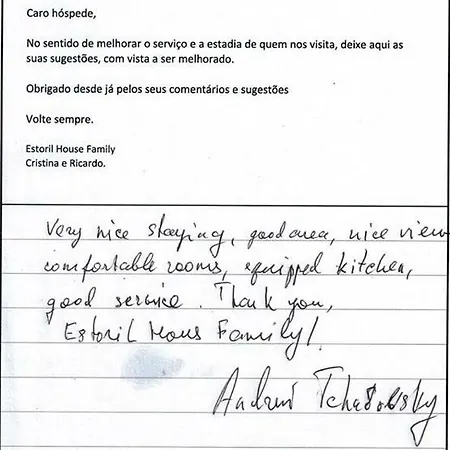 Caro hóspede,
No sentido de melhorar o serviço e a estadia de quem nos visita, deixe aqui as
suas sugestões, com vista a ser melhorado.
Obrigado desde já pelos seus comentários e sugestões
Volte sempre.
Estoril House Family
Cristina e Ricardo.
Very nice staying, good area, nice view
comfortable rooms, equipped kitchen,
good service. Thank you,
Estoril Hous Family!